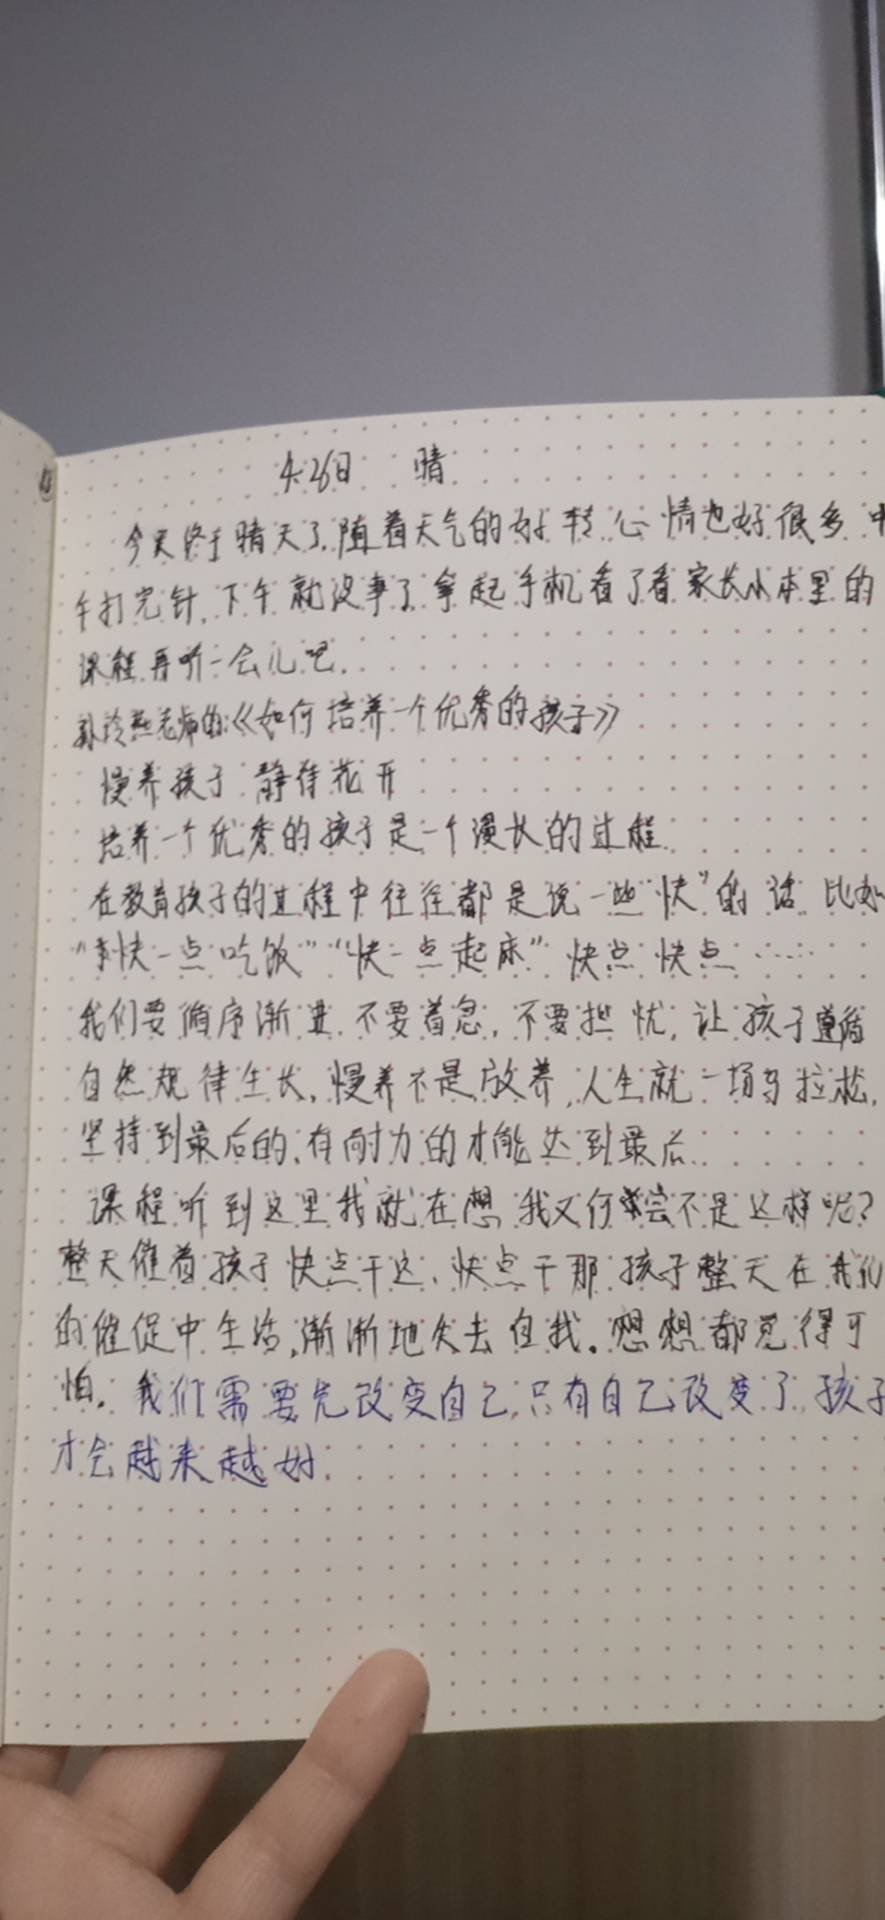 4.26日 晴
今天终于晴天了,随着天气的好转心情也好很多 中
午打完针,下午就没事了拿起手机看了看家长小本里的
课程再听一会儿吧.
老师的:《如何培养一个优秀的孩子》
慢养孩子 静待花开
培养一个优秀的孩子是一个漫长的过程.
在教育孩子的过程中往往都是说一些"快"的话 比如
"快一点吃饭" "快一点起床" 快点 快点……
我们要循序渐进,不要着急,不要担忧,让孩子遵循
自然规律生长,慢养不是放养,人生就一场马拉松,
坚持到最后的,有耐力的才能达到最后.
课程听到这里我就在想我又何尝不是这样呢?
整天催着孩子快点干这、快点干那 孩子整天在我们
的催促中生活,渐渐地失去自我。想想都觉得可
怕。我们需要先改变自己,只有自己改变了 孩子
才会越来越好.